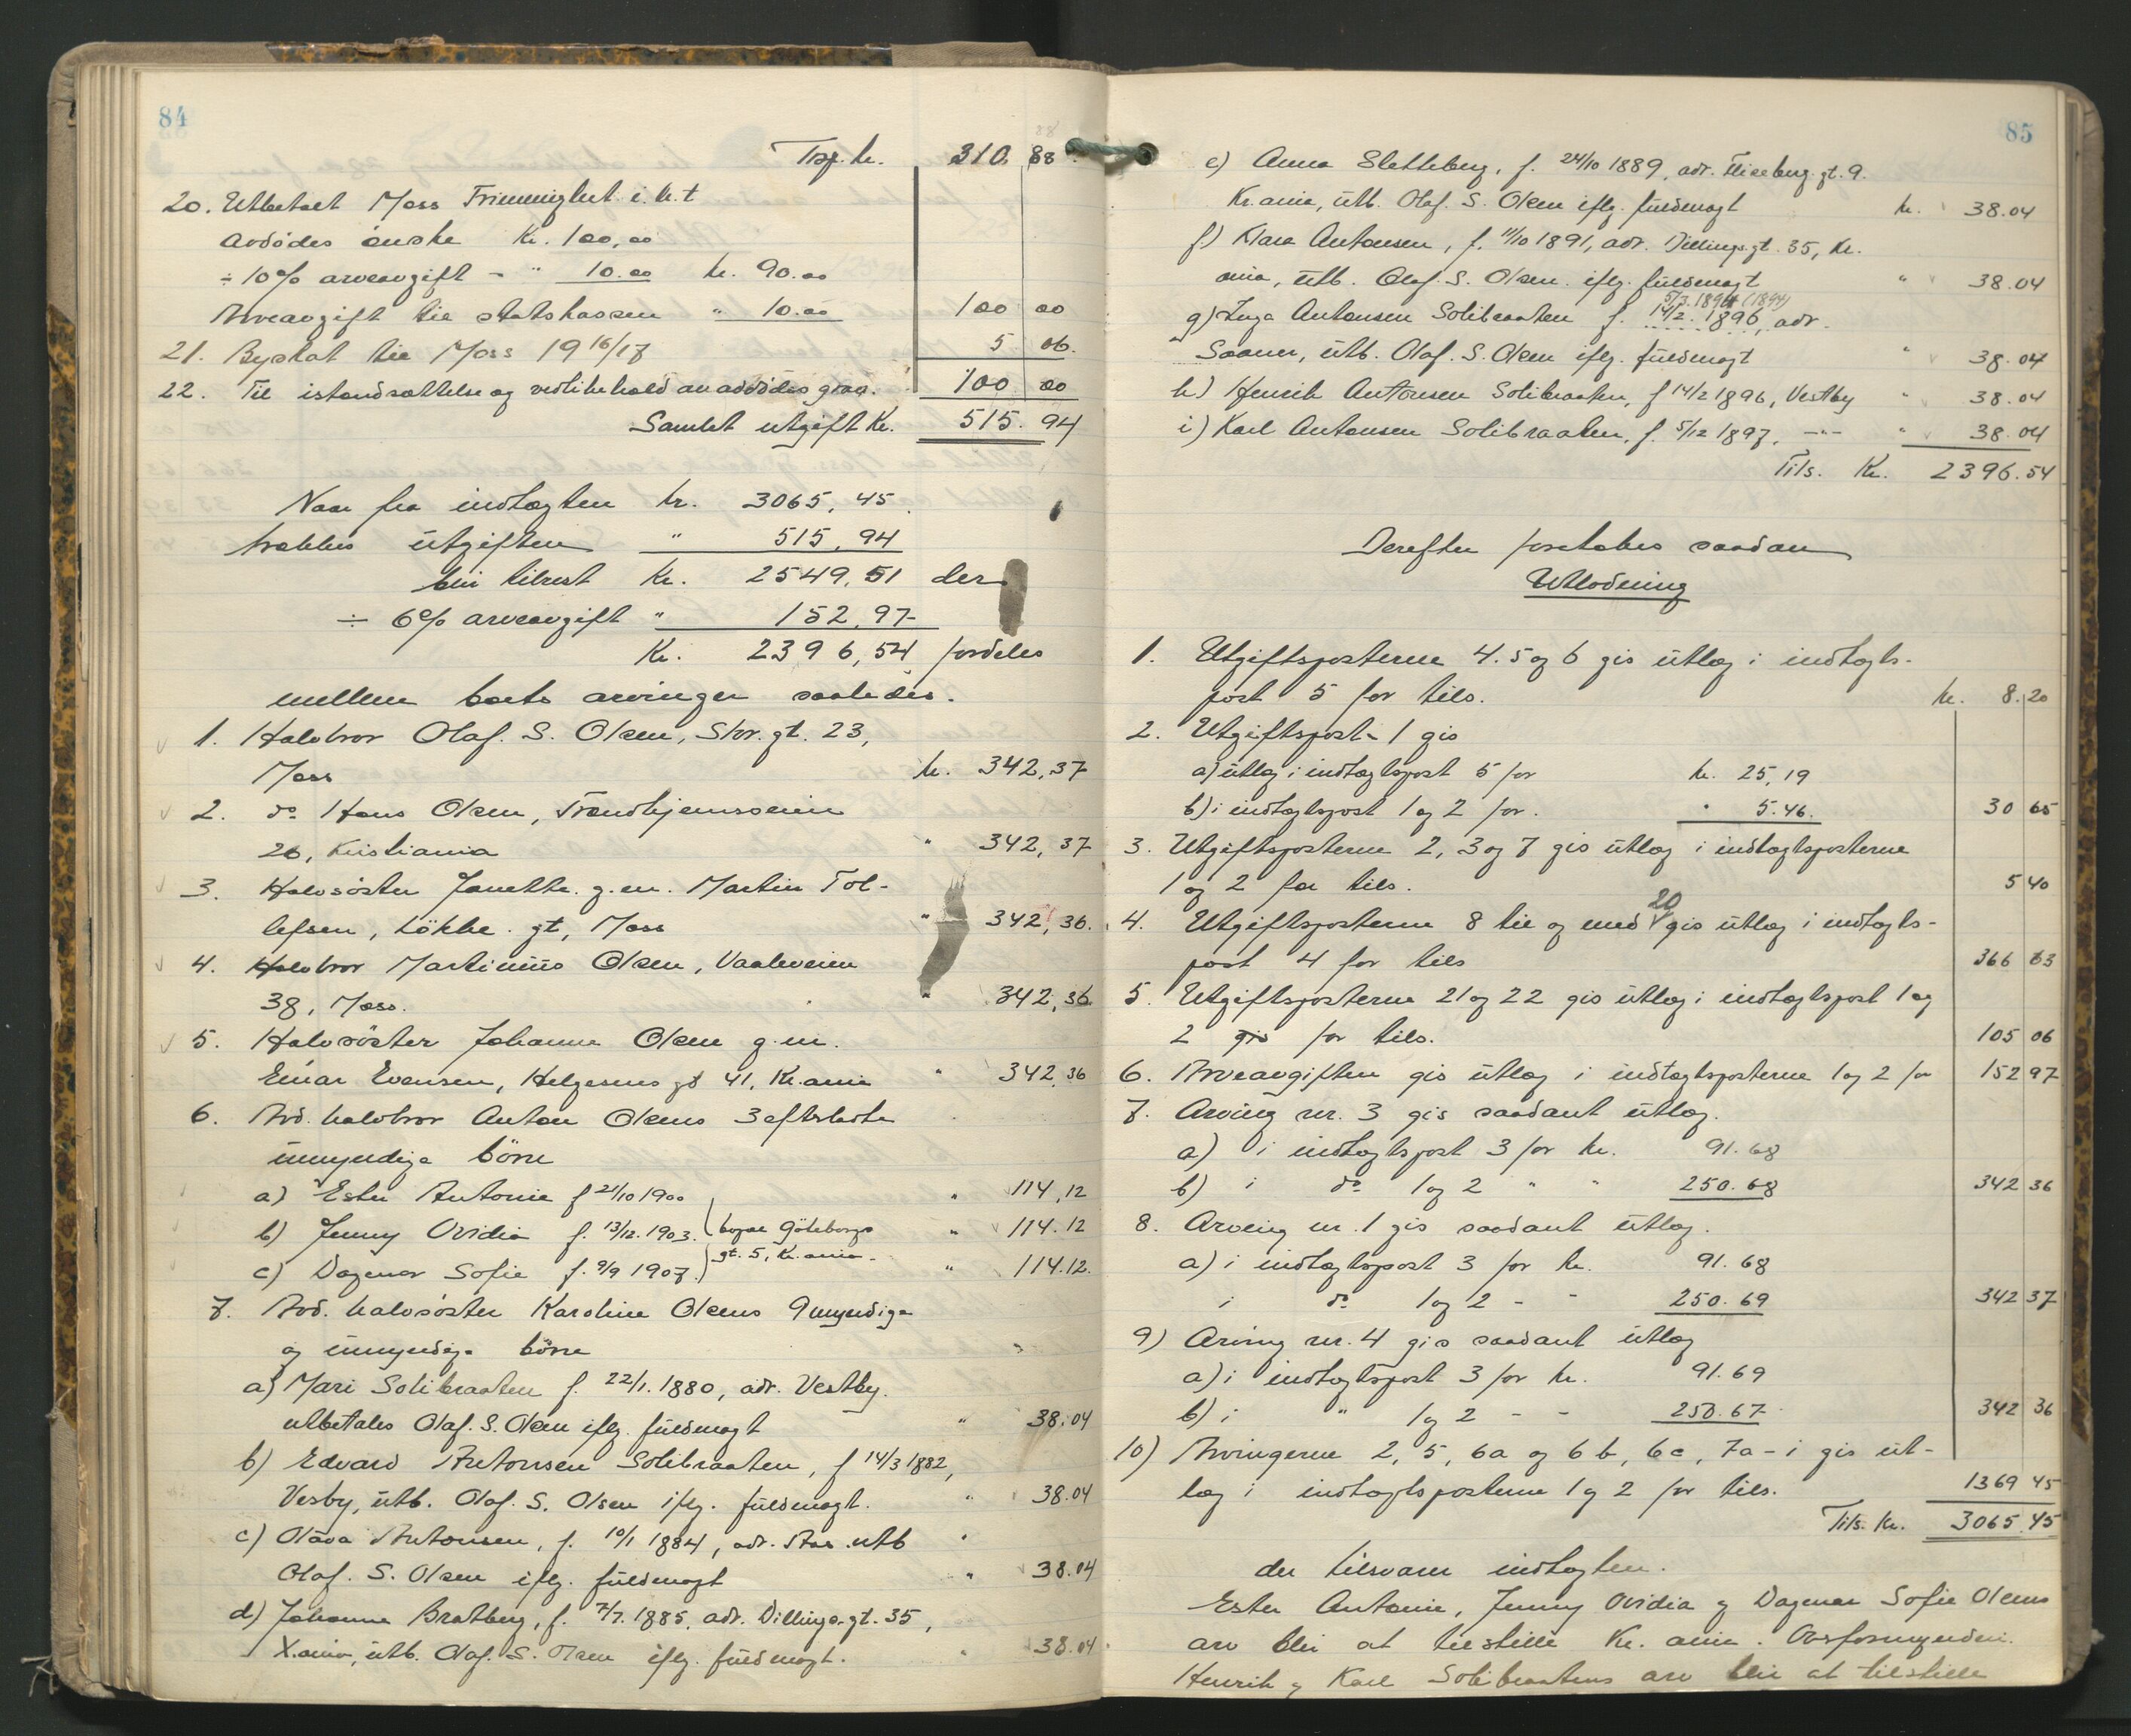 84
Trsp. kr. 310. 88
20. Utbetalt Moss Frimenighet i. h. t
avdödes önske Kr. 100,00
÷ 10% arveavgift - " 10.00 kr. 90.00
Arveavgift til statskassen " 10.00 100 00
21. Byskat til Moss 19 16/17 5 06.
22. Til istandsættelse og vedlikehold av avdödes grav. 100 00
Samlet utgift Kr. 515. 94
Naar fra indtægten kr. 3065,45
trækkes utgiften " 515,94
blir tilrest Kr. 2549,51 der
÷ 6% arveavgift " 152,97
Kr. 2396,54 fordeles
mellem boets arvinger saaledes.
1. Halvbror Olaf. S. Olsen, Stor. gt. 23,
Moss kr. 342,37
2. do Hans Olsen, Trondhjemsveien
26, Kristiania " 342,37
3. Halvsöster Janette. g. m. Martin Tol-
lefsen, Lökke. gt, Moss " 342,36.
4. Halvbror Martinius Olsen, Vaaleveien
38, Moss. " 342,36
5. Halvsöster Johanne Olsen g. m.
Einar Evensen, Helgesens gt 41, Kr.ania " 342,36
6. Avd. halvbror Anton Olsens 3 efterlatte
umyndige börn
a) Ester Antonie f 21/10 1900 " 114,12
b) Jenny Ovidia f. 13/12. 1903. bopæl Göteborgs " 114.12
c) Dagmar Sofie f. 9/9 1907. gt. 5, Kr. ania. " 114.12.
7. Avd. halvsöster Karoline Olsens 9 myndige
og umyndige börn
a) Mari Solibraaten f. 22/1. 1880, adr. Vestby.
utbetales Olaf. S. Olsen iflg. fuldmagt " 38.04
b) Edvard Antonsen Solibraaten, f 14/3 1882,
Vesby, utb. Olaf. S. Olsen iflg. fuldmagt. " 38.04
c) Olava Antonsen, f. 10/1 1884, adr. Aas. utb
Olaf. S. Olsen iflg. fuldmagt " 38.04
d) Johanne Bratberg, f. 7/7. 1885, adr. Dillings. gt. 35,
X.ania, utb. Olaf. S. Olsen iflg. fuldmagt. " 38.04
85
e) Anna Sletteberg, f. 24/10 1889, adr. gt. 9.
Kr. ania, utb. Olaf. S. Olsen iflg. fuldmagt kr. 38.04
f.) Klara Antonsen, f. 11/10 1891, adr. Dillings. gt. 35, Kr.
ania, utb. Olaf. S. Olsen. iflg. fuldmagt " 38.04
5/3. 1894 (1894)
g) Inga Antonsen Solibraaten f. 14/2. 1896, adr.
Saaner, utb. Olaf. S. Olsen iflg. fuldmagt " 38.04
h) Henrik Antonsen Solibraaten, f 14/2 1896, Vestby " 38.04
i) Karl Antonsen Solibraaten, f. 5/12 1897, -"- " 38.04
Tils. Kr. 2396.54
Derefter foretokes saadan
Utlodning
1. Utgiftsposterne 4. 5 og 6 gis utlæg i indtægts-
post 5 for tils. kr. 8.20
2. Utgiftspost 1 gis
a) utlæg i indtægtspost 5 for kr. 25,19
b) i indtægtspost 1 og 2 for. " 5.46. 30 65
3. Utgiftsposterne 2, 3 og 7 gis utlæg i indtægtsposterne
1 og 2 for tils. 5 40
4. Utgiftsposterne 8 til og med 20 gis utlæg i indtægts-
post 4 for tils 366 63
5. Utgiftsposterne 21 og 22 gis utlæg i indtægtspost 1 og
2 gis for tils. 105 06
6. Arveavgiften gis utlæg i indtægtsposterne 1 og 2 for 152 97
7. Arving nr. 3 gis saadant utlæg.
a) i indtægtspost 3 for kr. 91.68
b) i do 1 og 2 " " 250.68 342 36
8. Arving nr. 1 gis saadant utlæg.
a) i indtægtspost 3 for kr. 91.68
i do 1 og 2 - - 250.69 342 37
9) Arving nr. 4 gis saadant utlæg
a) i indtægtspost 3 for kr. 91.69
b) i " 1 og 2 - - 250.67 342 36
10) Arvingerne 2, 5, 6a og 6b, 6c, 7a - i gis ut-
læg i indtægtsposterne 1 og 2 for tils. 1369 45
Tils. Kr. 3065.45
der tilsvarer indtægten.
Ester Antonie, Jenny Ovidia og Dagmar Sofie Olsens
arv blir at tilstille Kr. ania. Overformynderi.
Henrik og Karl Solibraatens arv blir at tilstille